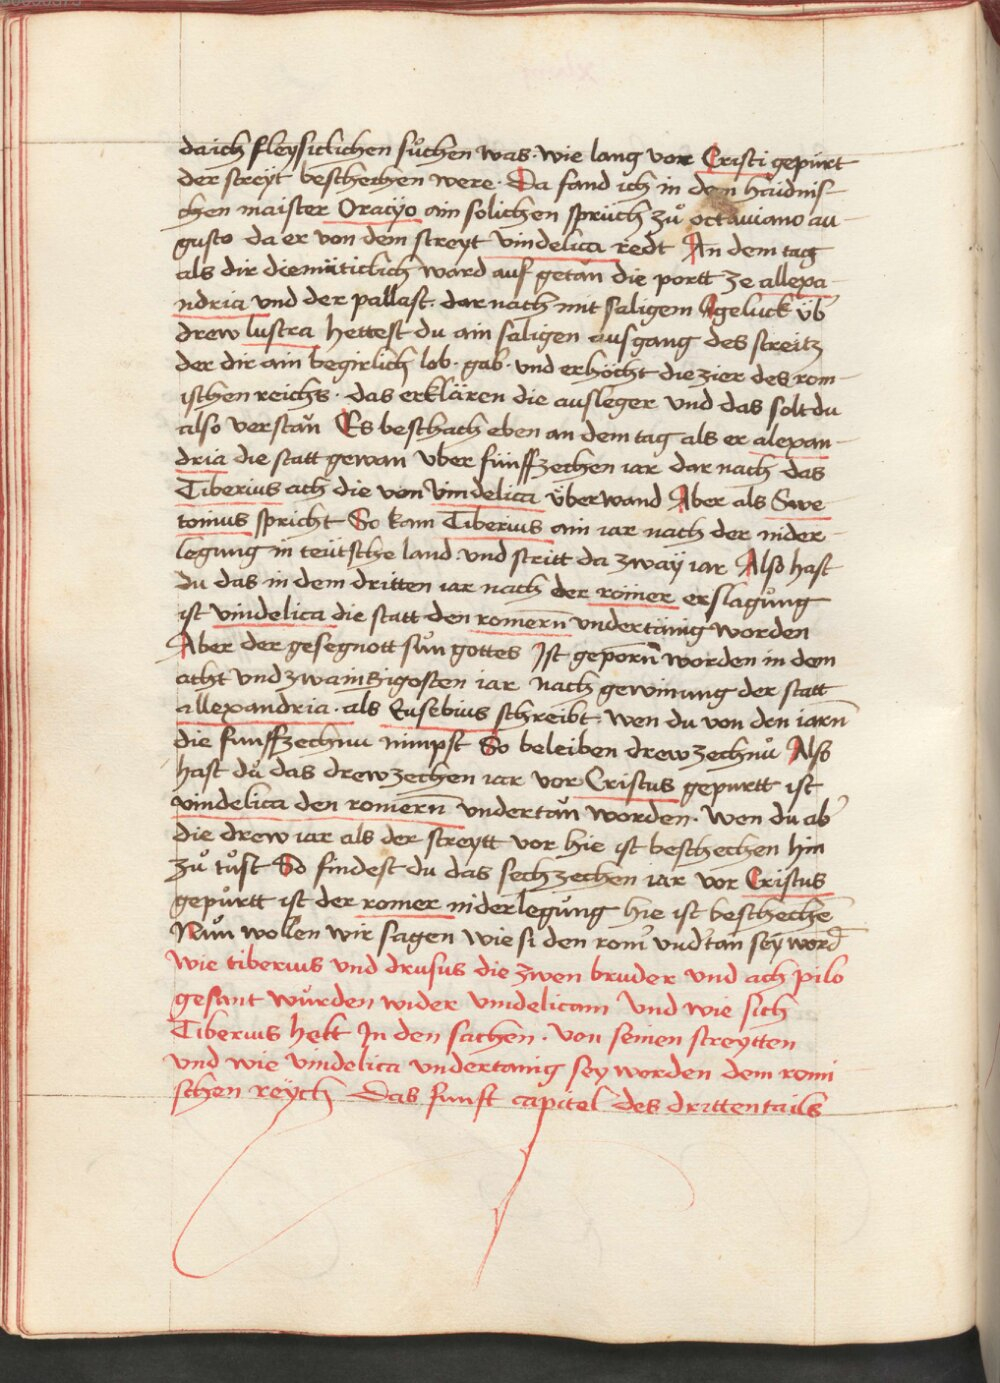 da ich fleysiclichen sůchen was · wie lang vor Cristi gepůrt
der streyt beschechen were · Da fand ich in dem haidnis-
chen maister Oracÿo ain solichen sprüch zů octauiano au-
gusto da er von dem streyt vindelica redt An dem tag
als dir diemüticlich ward auf getan die portt ze allexa-
ndria und der pallast · dar nach mit saligem geluck üb̄
drew lustra hettest du ain saligen ausgang des streitz
der dir ain begirlich lob · gab · und erhöcht die zier des rom-
ischen reichs · das erklären die ausleger und das solt du
also verstan̆ Es beschach eben an dem tag als er alexan-
dria die statt gewan vber fünffzechen iar dar nach das
Tiberius ach die von vindelica überwand Aber als Swe
tonius spricht So kam Tiberius ain iar nach der nider-
legung in teütsche land · und stritt da zwaÿ iar Also hast
du das in dem dritten iar nach der römer erslagůng
ist vindelica die statt den romern̄ vndertänig worden
Aber der gesegnott sůn gottes Ist geporn̄ worden in dem
acht und zwainzigosten iar nach gewinung der statt
allexandria · als Eusebius schreibt · wen du von den iarn̄
die funffzechnu nimpst So beleiben drewzechnů Also
hast dů das drewzechen iar vor Cristus gepurtt ist
vindelica den romern̄ vndertan̆ worden · Wen du ab̄
die drew iar als der streytt vor hie ist beschechen hin
zů tůst So findest du das sechzechen iar vor Cristus
gepůrtt ist der romer niderlegůng hie ist bescheche̅
Nůn wollen wir sagen wie si den rom̄ vnd̄tan sey word̄
Wie tiberius vnd drusus die zwen bruder vnd ach pilo
gesant wůrden wider vindelicam vnd wie sich
Tiberius hett In den sachen · von seinen streytten
vnd wie vindelica vndertanig sey worden dem romi
schen reÿch Das funft capitel des dritten tails